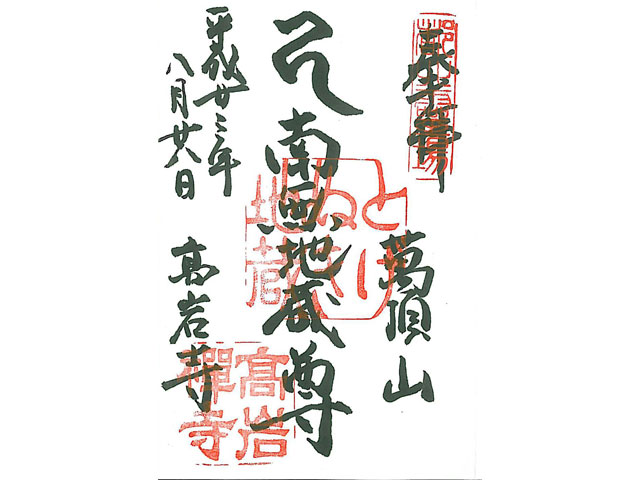 奉拝
萬頂山
南無地蔵尊
とげぬき
地蔵
平成廿三年
八月廿八日
高岩寺
高岩
禪寺